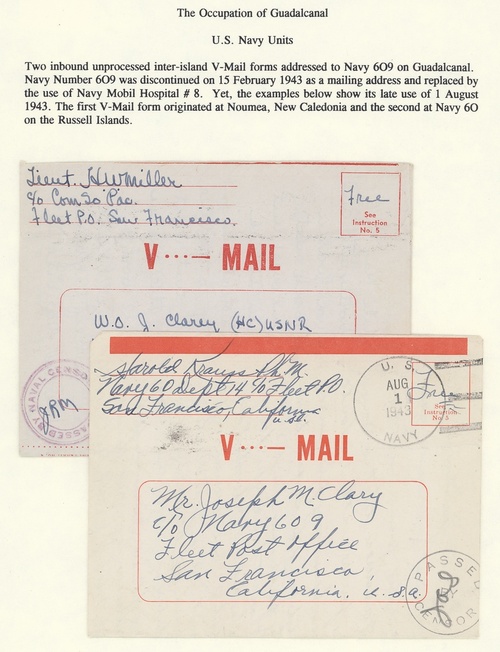 The Occupation of Guadalcanal
U.S. Navy Units
Two inbound unprocessed inter-island V-Mail forms addressed to Navy 6O9 on Guadalcanal.
Navy Number 6O9 was discontinued on 15 February 1943 as a mailing address and replaced by
the use of Navy Mobil Hospital # 8. Yet, the examples below show its late use of 1 August
1943. The first V-Mail form originated at Noumea, New Caledonia and the second at Navy 6O
on the Russell Islands.
Lieut. H W Miller
c/o ComSoPac.
Fleet P.O. San Francisco.
Free
See
Instruction
No. 5
V ···— MAIL
W.O. J. Clarey (HC) USNR
PASSED BY NAVAL CENSO
JRM
Harold Krauss Ph.M.
Navy 60 Dept 14 c/o Fleet P.O.
San Francisco, California
U.S.A.
U. S.
AUG
1
1943
NAVY
Free
See
Instruction
No. 5
V ···— MAIL
Mr. Joseph M. Clary
c/o Navy 609
Fleet Post Office
San Francisco,
California, U.S.A.
PASSED
CENSOR